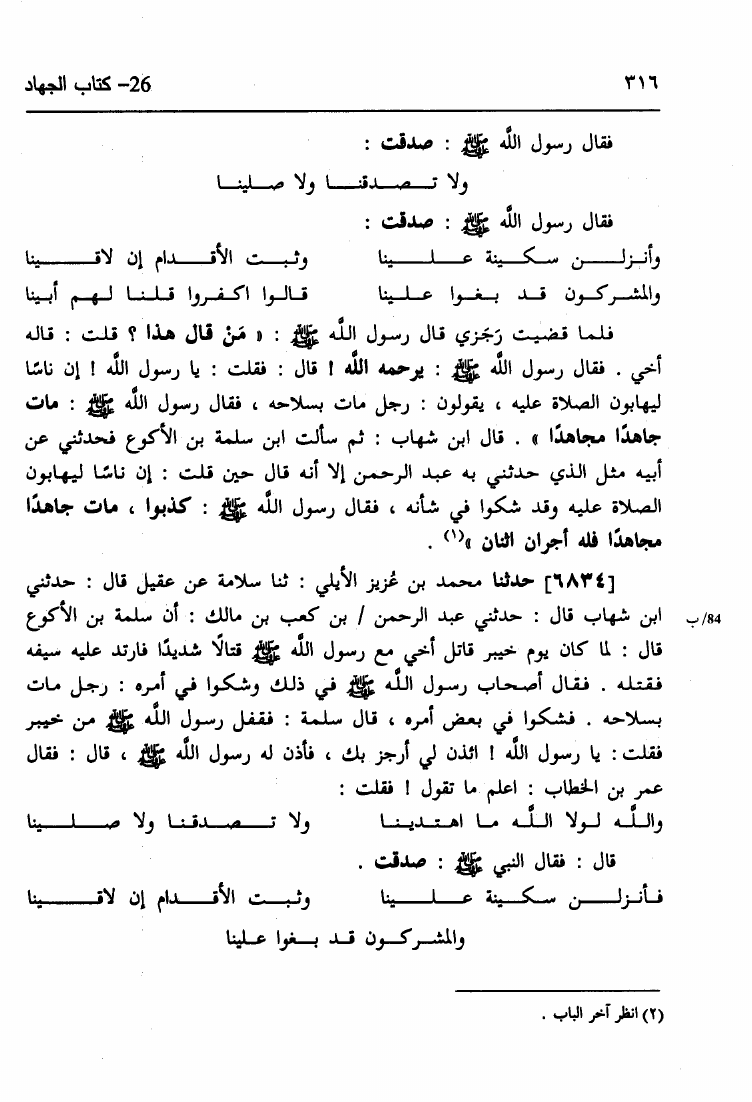 ٣١٦ 26- كتاب الجهاد
فقال رسول اللَّه ﷺ : صدقت :
ولا تـــصـــدقنـــا ولا صـــلينـــا
فقال رسول اللَّه ﷺ : صدقت :
وأنـزلـــن سكـــينة عـــلـــينا وثـبـــت الأقـــدام إن لاقـــينا
والمشـركـون قـد بـغـوا عـلـينا قـالـوا اكـفـروا قـلـنـا لـهـم أبـينا
فلمـا قضيـت رَجَـزي قال رسول اللَّـه ﷺ : « مَنْ قال هذا ؟ قلت : قاله
أخي . فقال رسول اللَّه ﷺ : يرحمه اللَّه ! قال : فقلت : يا رسول اللَّه ! إن ناسًا
ليهابون الصلاة عليه ، يقولون : رجل مات بسلاحه ، فقال رسول اللَّه ﷺ : مات
جاهدًا مجاهدًا » . قال ابن شهاب : ثم سألت ابن سلمة بن الأكوع فحدثني عن
أبيه مثل الذي حدثني به عبد الرحمن إلا أنه قال حين قلت : إن ناسًا ليهابون
الصلاة عليه وقد شكوا في شأنه ، فقال رسول اللَّه ﷺ : كذبوا ، مات جاهدًا
مجاهدًا فله أجران اثنان »(١) .
[٦٨٣٤] حدثنا محمد بن عُزيز الأيلي : ثنا سلامة عن عقيل قال : حدثني
ابن شهاب قال : حدثني عبد الرحمن / بن كعب بن مالك : أن سلمة بن الأكوع 84/ب
قال : لما كان يوم خيبر قاتل أخي مع رسول اللَّه ﷺ قتالًا شديدًا فارتد عليه سيفه
فقتله . فقال أصحاب رسول اللَّه ﷺ في ذلك وشكوا في أمره : رجل مات
بسلاحه . فشكوا في بعض أمره ، قال سلمة : فقفل رسول اللَّه ﷺ من خيبر
فقلت : يا رسول اللَّه ! ائذن لي أرجز بك ، فأذن له رسول اللَّه ﷺ ، قال : فقال
عمر بن الخطاب : اعلم ما تقول ! فقلت :
واللَّـه لـولا اللَّـه مـا اهـتـديـنـا ولا تـــصـــدقنـا ولا صـــلـــينا
قال : فقال النبي ﷺ : صدقت .
فـأنـزلـــن سكـــينة عـــلـــينا وثـبـــت الأقـــدام إن لاقـــينا
والمشـركـون قـد بـغوا عـلينا
(٢) انظر آخر الباب .